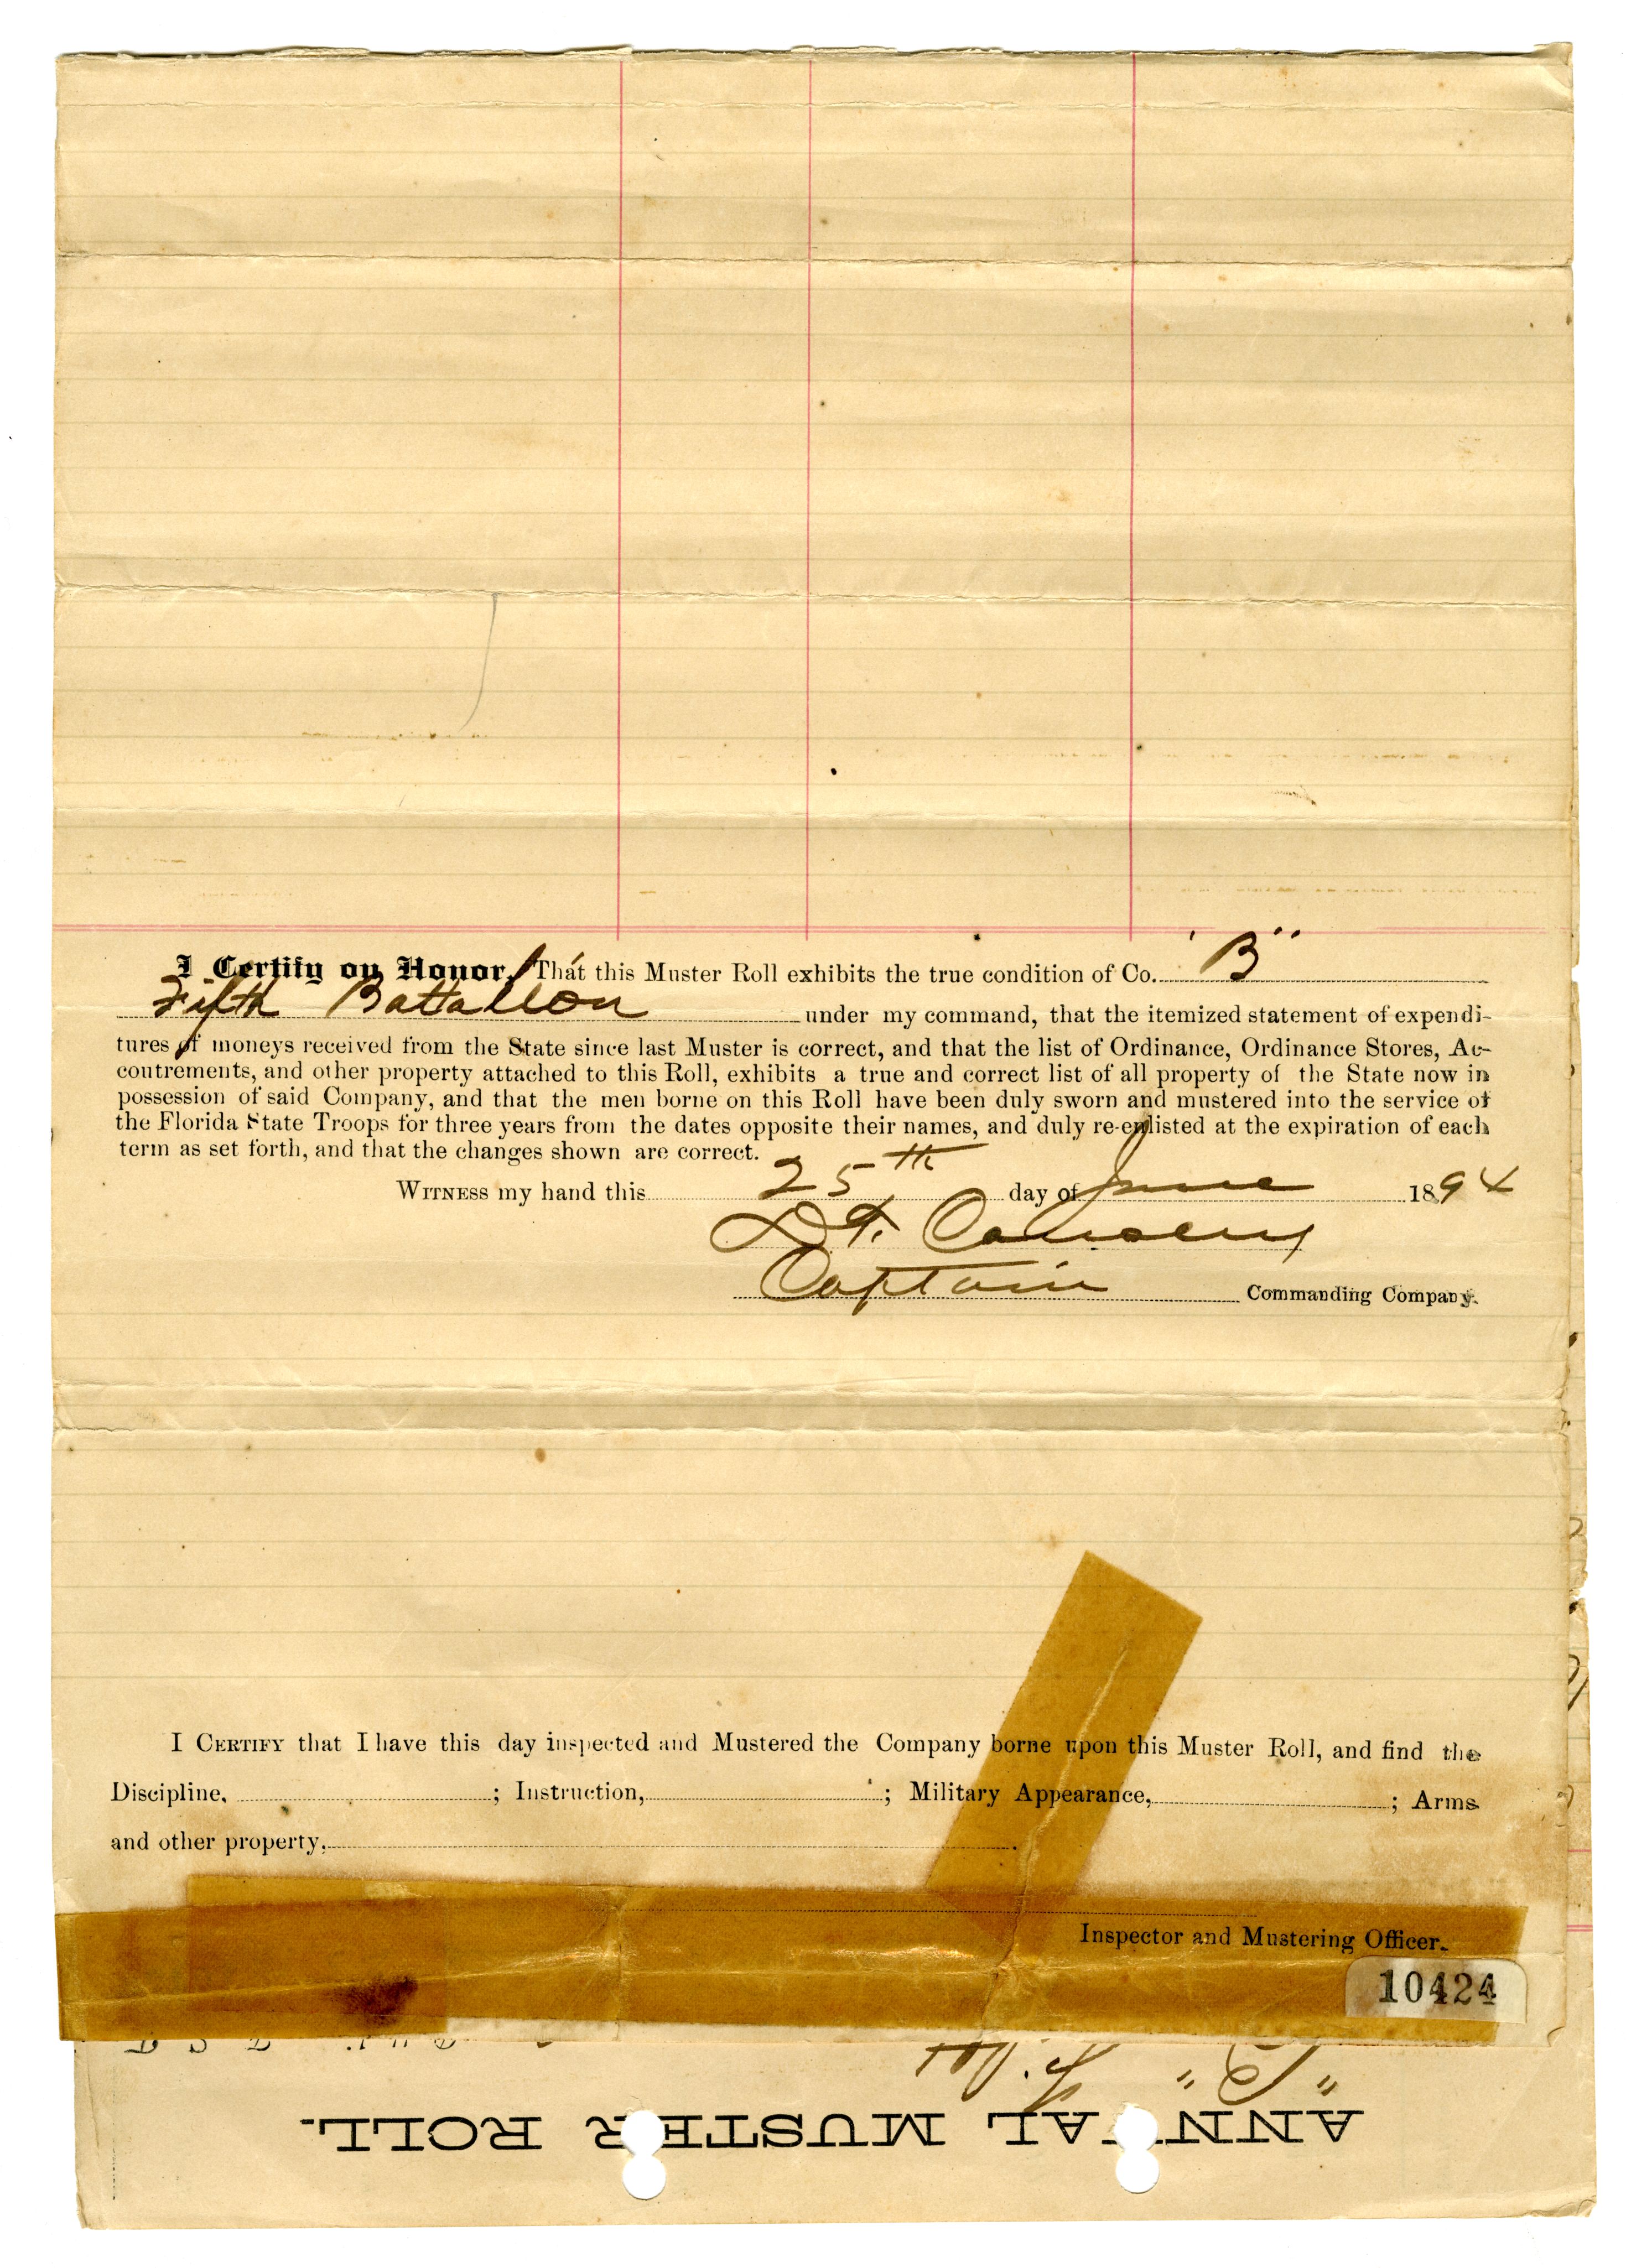 I Certify on Honor, That this Muster Roll exhibits the true condition of Co. "B"
Fifth Battallion under my command, that the itemized statement of expendi-
tures of moneys received from the State since last Muster is correct, and that the list of Ordinance, Ordinance Stores, Ac-
coutrements, and other property attached to this Roll, exhibits a true and correct list of all property of the State now in
possession of said Company, and that the men borne on this Roll have been duly sworn and mustered into the service of
the Florida State Troops for three years from the dates opposite their names, and duly re-enlisted at the expiration of each
term as set forth, and that the changes shown are correct.
WITNESS my hand this 25th day of June 1894
Captain Commanding Company.
I CERTIFY that I have this day inspected and Mustered the Company borne upon this Muster Roll, and find the
Discipline, ; Instruction, ; Military Appearance, ; Arms
and other property,
Inspector and Mustering Officer.
10424
ANNUAL MUSTER ROLL.